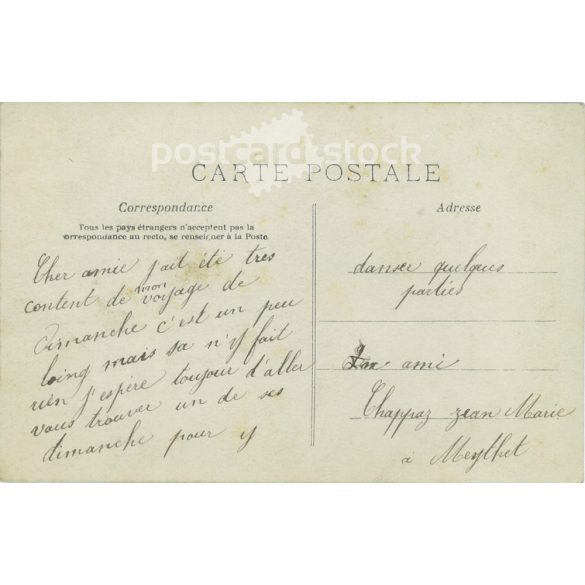 postcard stock
CARTE POSTALE
Correspondance
Tous les pays étrangers n'acceptent pas la
correspondance au recto, se renseigner à la Poste.
Cher amie j'ait été tres
content de mon voyage de
dimanche c'est un peu
loing mais sa n'y fait
rien j'espère toujour d'aller
vous trouver un de ses
dimanche pour y
Adresse
danser quelques
parties
ami
Chappaz Jean Marie
à Meythet